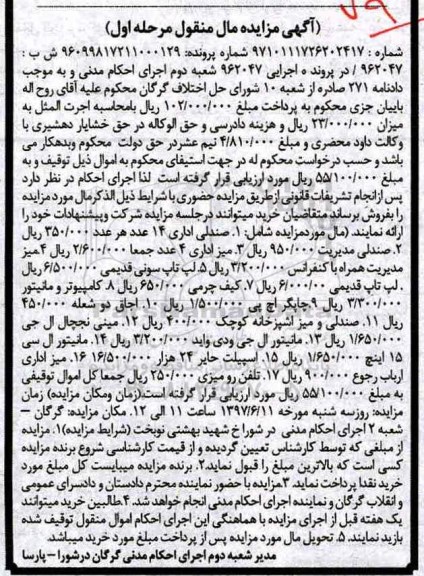 ۷۹
(آگهی مزایده مال منقول مرحله اول)
شماره : ۹۷۱۰۱۱۱۷۲۶۲۰۲۴۱۷ شماره پرونده: ۹۶۰۹۹۸۱۷۲۱۱۰۰۰۱۲۹ ش ب :
۹۶۲۰۴۷ / در پرونده اجرایی ۹۶۲۰۴۷ شعبه دوم اجرای احکام مدنی و به موجب
دادنامه ۲۷۱ صادره از شعبه ۱۰ شورای حل اختلاف گرگان محکوم علیه آقای روح اله
بابیان جزی محکوم به پرداخت مبلغ ۱۰۲/۰۰۰/۰۰۰ ریال بامحاسبه اجرت المثل به
میزان ۲۳/۰۰۰/۰۰۰ ریال و هزینه دادرسی و حق الوکاله در حق خشایار دهشیری با
وکالت داود محضری و مبلغ ۴/۸۱۰/۰۰۰ ریال نیم عشردر حق دولت محکوم وبدهکار می
باشد و حسب درخواست محکوم له در جهت استیفای محکوم به اموال ذیل توقیف و به
مبلغ ۵۵/۱۰۰/۰۰۰ ریال مورد ارزیابی قرار گرفته است لذا اجرای احکام در نظر دارد
پس ازانجام تشریفات قانونی ازطریق مزایده حضوری باشرایط ذیل الذکرمال مورد مزایده
را بفروش برساند متقاضیان خرید میتوانند درجلسه مزایده شرکت وپیشنهادات خود را
ارائه نمایند. (مال موردمزایده شامل: ۱. صندلی اداری ۱۴ عدد هر عدد ۳۵۰/۰۰۰ ریال
۲. صندلی مدیریت ۹۵۰/۰۰۰ ریال ۳. میز اداری ۴ عدد جمعا ۲/۶۰۰/۰۰۰ ریال ۴.میز
مدیریت همراه با کنفرانس ۳/۲۰۰/۰۰۰ ریال ۵. لپ تاپ سونی قدیمی ۶/۵۰۰/۰۰۰ ریال
. لپ تاپ قدیمی ۶/۰۰۰/۰۰ ریال ۷. کیف چرمی ۶۵۰/۰۰۰ ریال ۸. کامپیوتر و مانیتور
۳/۳۰۰/۰۰۰ ریال ۹.چاپگر اچ پی ۱/۵۰۰/۰۰۰ ریال ۱۰. اجاق دو شعله ۴۵۰/۰۰۰
ریال ۱۱. صندلی و میز آشپزخانه کوچک ۴۰۰/۰۰۰ ریال ۱۲. مینی یخچال ال جی
۱/۶۵۰/۰۰۰ ریال ۱۳. مانیتور ال جی ودی واید ۳/۲۰۰/۰۰۰ ریال ۱۴. مانیتور ال سی
۱۵ اینچ ۱/۶۵۰/۰۰۰ ریال ۱۵. اسپیلت حایر ۲۴ هزار ۱۶/۵۰۰/۰۰۰ ۱۶. میز اداری
ارباب رجوع ۹۰۰/۰۰۰ ریال ۱۷. تلفن رو میزی ۲۵۰/۰۰۰ ریال جمعا کل اموال توقیفی
به مبلغ ۵۵/۱۰۰/۰۰۰ ریال مورد ارزیابی قرار گرفته است.(زمان ومکان مزایده) زمان
مزایده: روزسه شنبه مورخه ۱۳۹۷/۶/۱۱ ساعت ۱۱ الی ۱۲. مکان مزایده: گرگان –
شعبه ۲ اجرای احکام مدنی در شورا خ شهید بهشتی نوبخت (شرایط مزایده)۱. مزایده
از مبلغی که توسط کارشناس تعیین گردیده و از قیمت کارشناسی شروع برنده مزایده
کسی است که بالاترین مبلغ را قبول نماید.۲. برنده مزایده میبایست کل مبلغ مورد
خرید نقدا پرداخت نماید. ۳.مزایده با حضور نماینده محترم دادستان و دادسرای عمومی
و انقلاب گرگان و نماینده اجرای احکام مدنی انجام خواهد شد. ۴.طالبین خرید میتوانند
یک هفته قبل از اجرای مزایده با هماهنگی این اجرای احکام اموال منقول توقیف شده
بازید نمایند. ۵. تحویل مال مورد مزایده پس از پرداخت مبلغ مورد خرید میباشد.
مدیر شعبه دوم اجرای احکام مدنی گرگان درشورا – پارسا